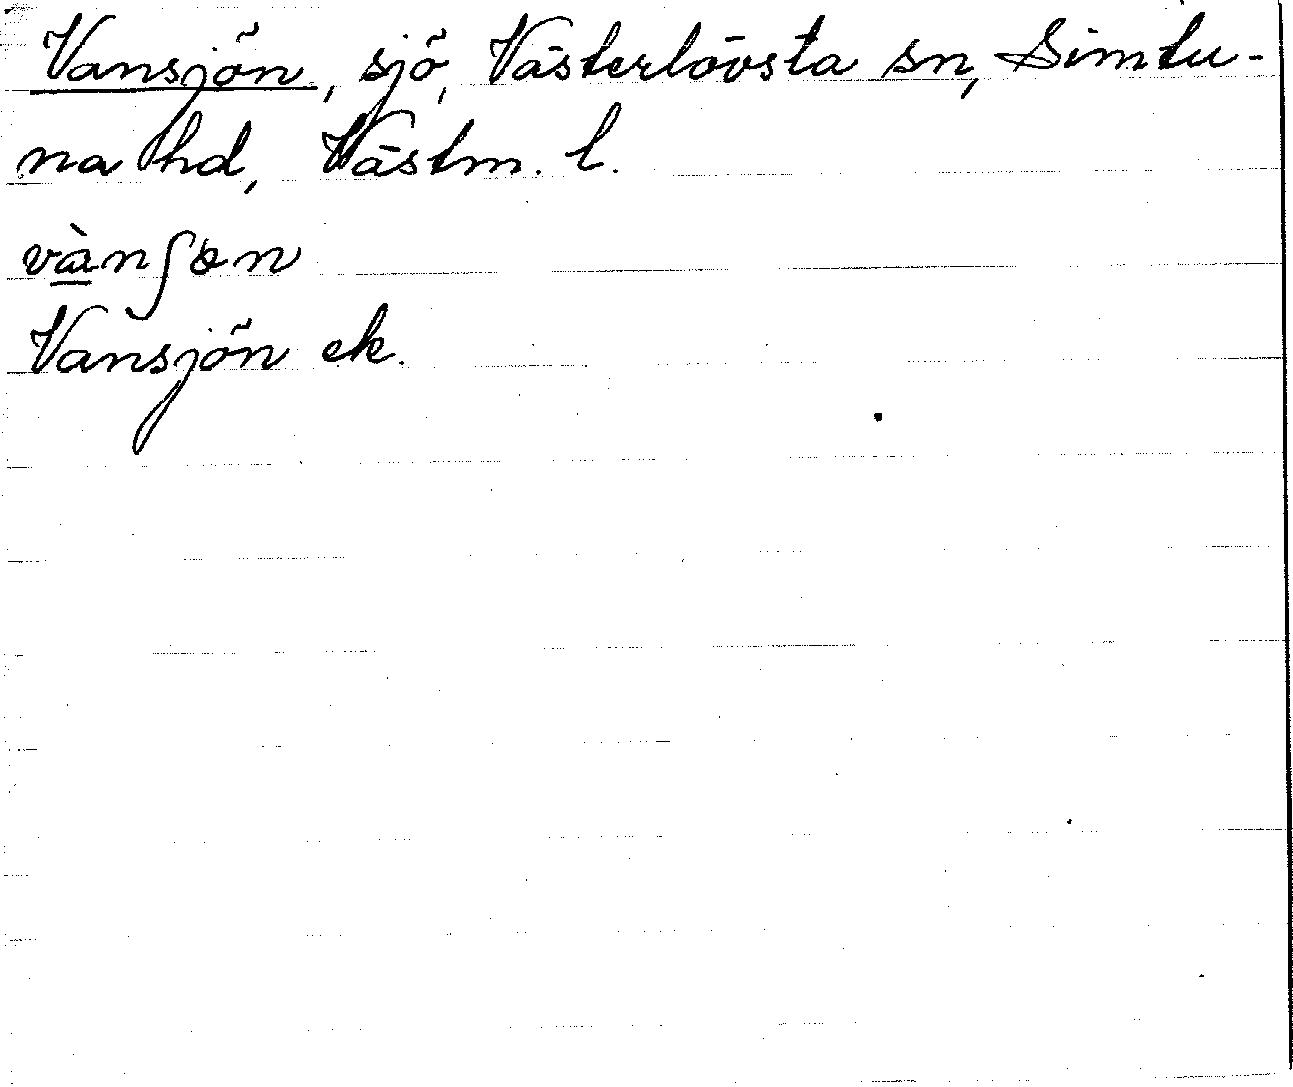 Vansjön, sjö, Västerlövsta sn, Simtu-
na hd, Västm. l.
vànʃɵn
Vansjön ek.